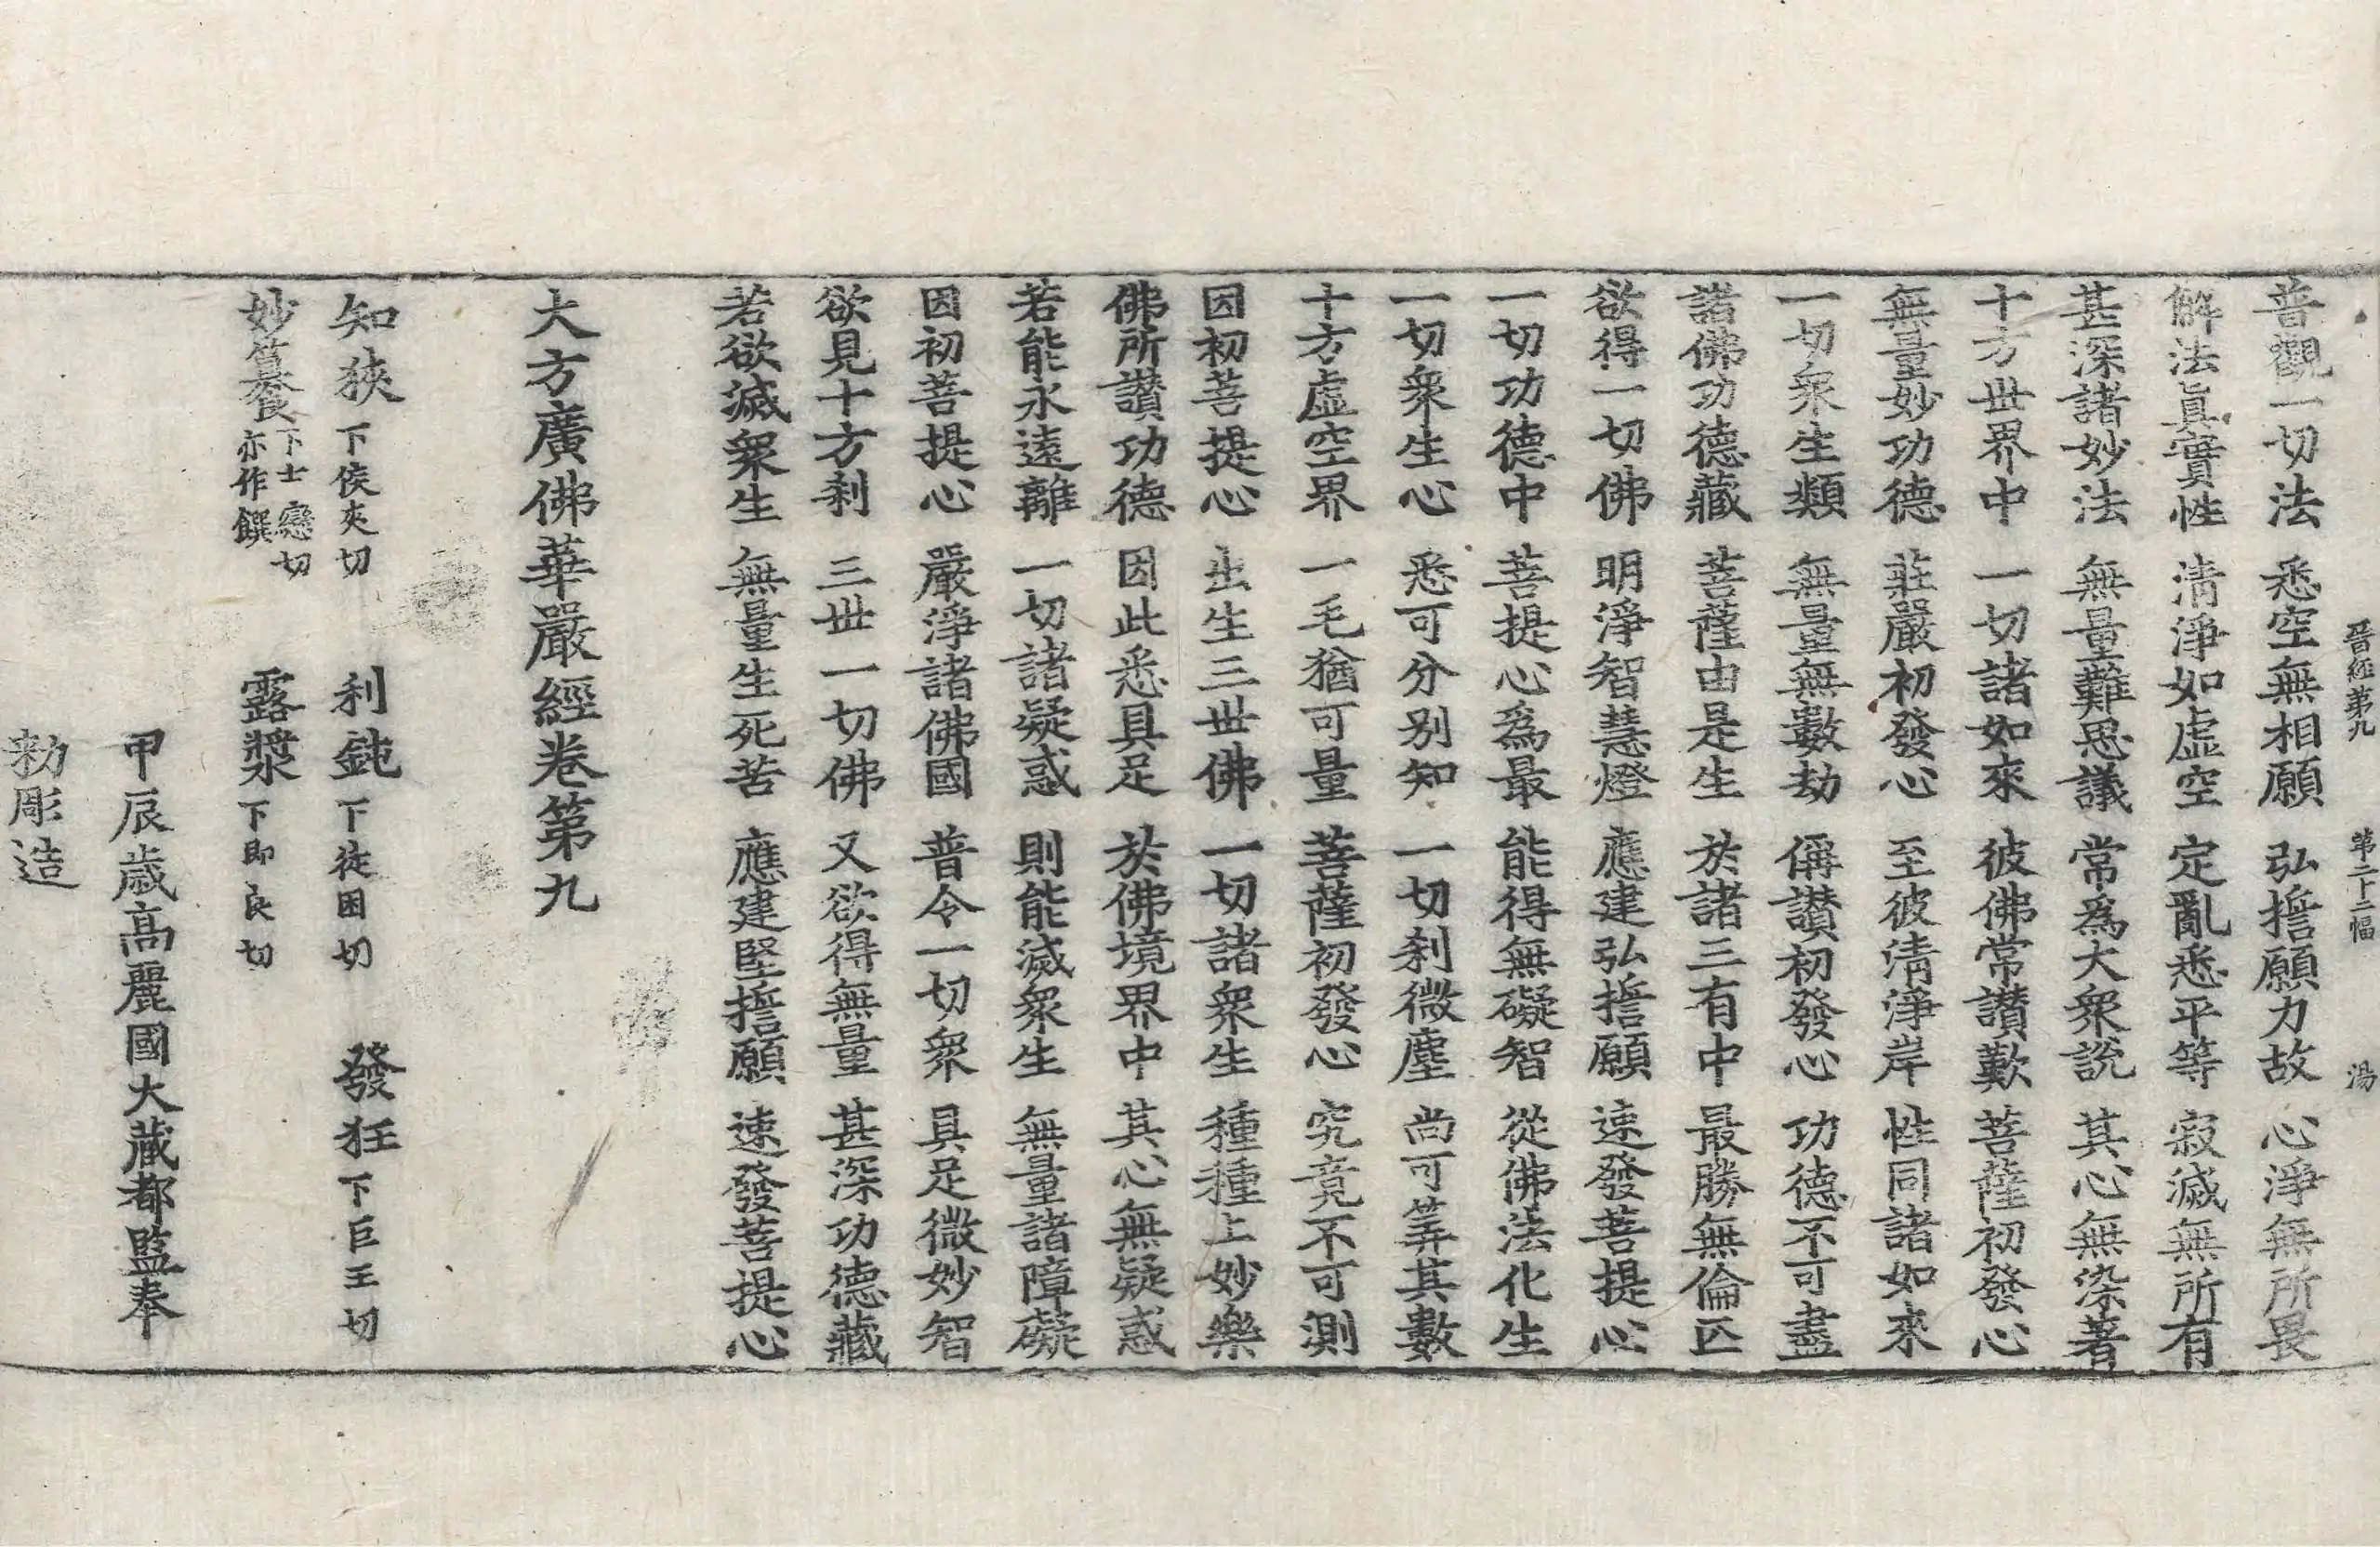 晉經第九 第二十二幅 湯
普觀一切法 悉空無相願 弘誓願力故 心淨無所畏
解法眞實性 淸淨如虛空 定亂悉平等 寂滅無所有
甚深諸妙法 無量難思議 常爲大衆說 其心無染著
十方世界中 一切諸如來 彼佛常讃歎 菩薩初發心
無量妙功德 莊嚴初發心 至彼淸淨岸 性同諸如來
一切衆生類 無量無數劫 偁讃初發心 功德不可盡
諸佛功德藏 菩薩由是生 於諸三有中 最勝無倫匹
欲得一切佛 明淨智慧燈 應建弘誓願 速發菩提心
一切功德中 菩提心爲最 能得無礙智 從佛法化生
一切衆生心 悉可分別知 一切刹微塵 尚可筭其數
十方虛空界 一毛猶可量 菩薩初發心 究竟不可測
因初菩提心 出生三世佛 一切諸衆生 種種上妙樂
佛所讃功德 因此悉具足 於佛境界中 其心無疑惑
若能永遠離 一切諸疑惑 則能滅衆生 無量諸障礙
因初菩提心 嚴淨諸佛國 普令一切衆 具足微妙智
欲見十方刹 三世一切佛 又欲得無量 甚深功德藏
若欲滅衆生 無量生死苦 應建堅誓願 速發菩提心
大方廣佛華嚴經卷第九
知狹 下侯夾切 利鈍 下徒困切 發狂 下巨王切
妙籑 下士戀切亦作饌 露漿 下即良切
甲辰歲高麗國大藏都監奉
勑彫造